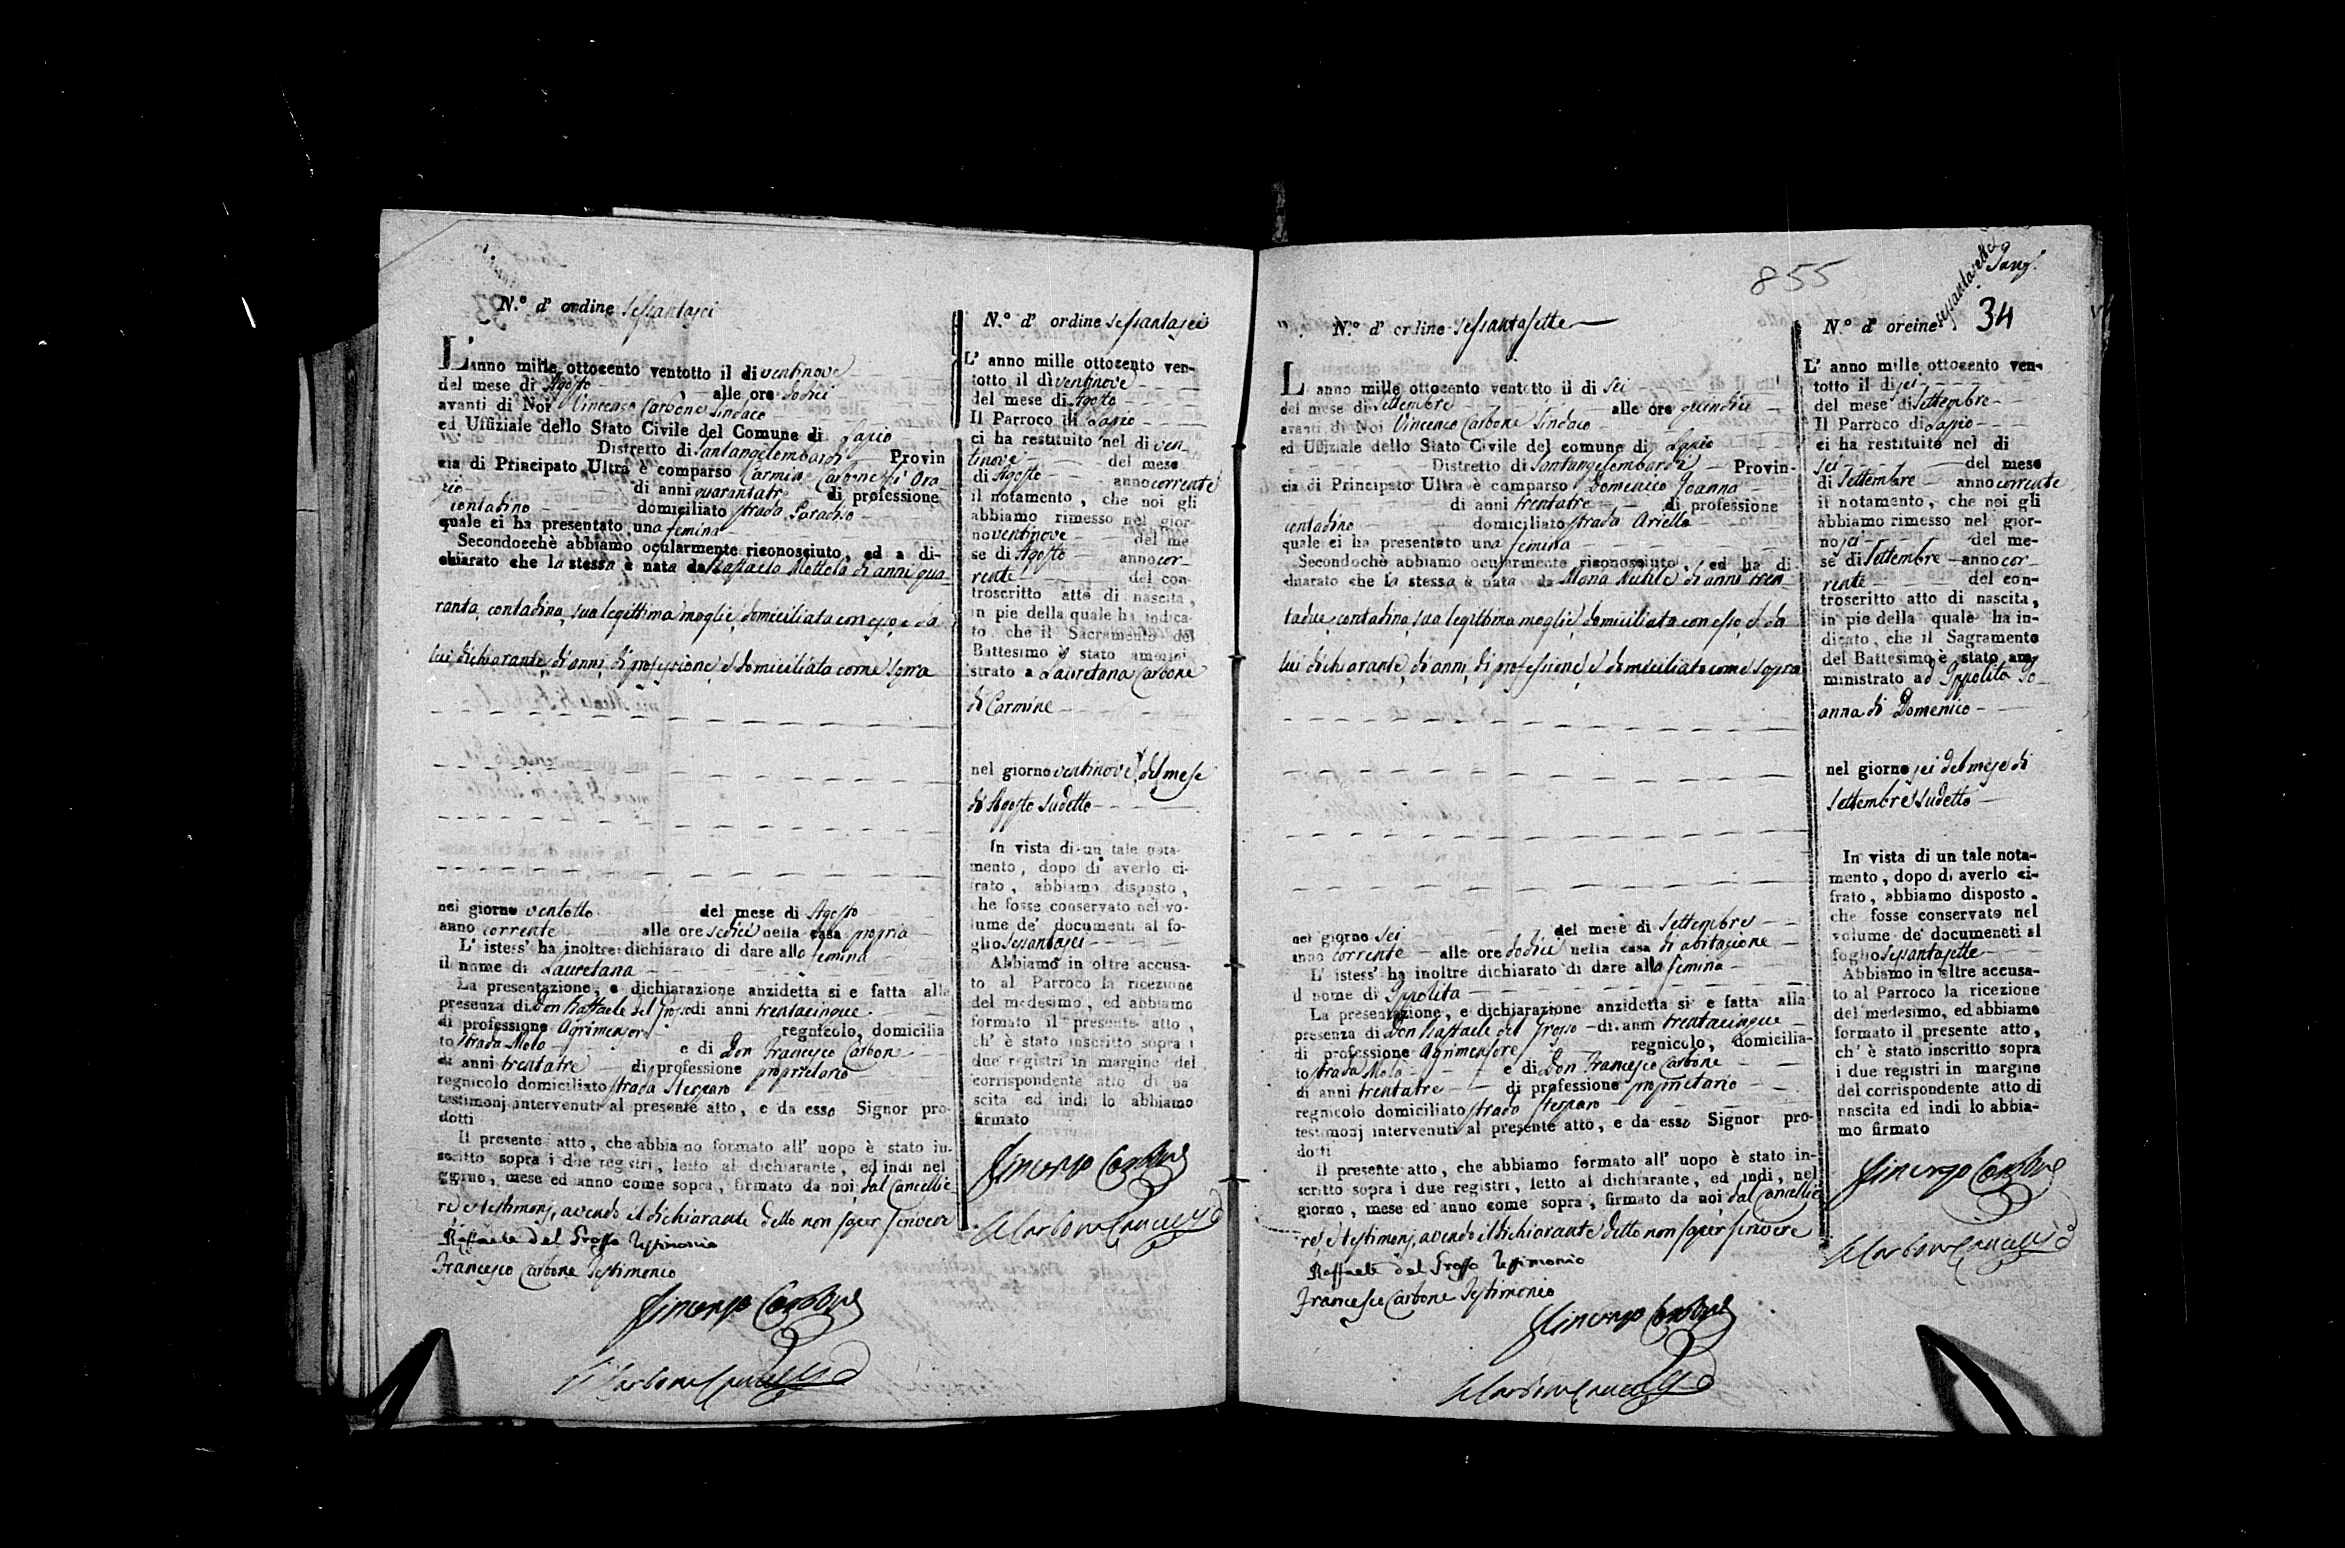 N.º d' ordine sessantasei
L' anno mille ottocento ventotto il di ventinove
del mese di Agosto alle ore dodici
avanti di Noi Vincenzo Carbone Sindaco
ed Uffiziale dello Stato Civile del Comune di Lapio
Distretto di Santangelombardi Provin
cia di Principato Ultra è comparso Carmine Carbone di Ora
zio di anni quarantatre di professione
contadino domiciliato strada
quale ci ha presentato una femina
Secondocchè abbiamo ocularmente riconosciuto, ed a di-
chiarato che la stessa è nata da Raffaela Mottola di anni qua-
ranta, contadina, sua legittima moglie, domiciliata con esso, e da
lui dichiarante, di anni, di professione, e domiciliato come sopra
nel giorno ventotto del mese di Agosto
anno corrente alle ore sedici nella casa propria
L' istess' ha inoltre dichiarato di dare alla femina
il nome di Lauretana
La presentazione, e dichiarazione anzidetta si e fatta alla
presenza di Don Raffaele del Grosso di anni trentacinque
di professione Agrimensore regnicolo, domicilia
to strada Molo e di Don Francesco Carbone
di anni trentatre di professione proprietario
regnicolo domiciliato strada
testimonj intervenuti al presente atto, e da esso Signor pro-
dotti
Il presente atto, che abbia no formato all' uopo è stato in-
scritto sopra i due registri, letto al dichiarante, ed indi nel
ggrno, mese ed anno come sopra, firmato da noi, dal Cancellie
re, e testimonj, avendo il dichiarante detto non saper scrivere
Raffaele del Grosso Testimonio
Francesco Carbone Testimonio
Vincenzo Carbone
N.º d' ordine sessantasei
L' anno mille ottocento ven-
totto il dì ventinove
del mese di Agosto
Il Parroco di Lapio
ci ha restituito nel di ven
tinove del mese
di Agosto anno corrente
il notamento, che noi gli
abbiamo rimesso nel gior-
no ventinove del me
se di Agosto anno cor-
rente del con-
troscritto atto di nascita,
in pie della quale ha indica-
to che il Sacramento del
Battesimo è stato ammini
strato a Lauretana Carbone
di Carmine
nel giorno ventinove, del mese
di Agosto sudetto
In vista di un tale nota-
mento, dopo di averlo ci-
frato, abbiamo disposto,
che fosse conservato nel vo-
lume de' documenti al fo-
glio sessantasei
Abbiamo in oltre accusa-
to al Parroco la ricezione
del medesimo, ed abbiamo
formato il presente atto,
ch' è stato inscritto sopra i
due registri in margine del
corrispondente atto di na
scita ed indi lo abbiamo
firmato
Vincenzo Carbone
855
34
N.º d' ordine sessantasette
L' anno mille ottocento ventotto il di sei
del mese di Settembre alle ore quindici
avanti di Noi Vincenzo Carbone Sindaco
ed Uffiziale dello Stato Civile del comune di Lapio
Distretto di Santangelombardi Provin-
cia di Principato Ultra è comparso Domenico Joanna
di anni trentatre di professione
contadino domiciliato strada Ariella
quale ci ha presentato una femina
Secondochè abbiamo ocularmente riconosciuto, ed ha di
chiarato che la stessa è nata da Maria di anni tren-
tadue, contadina, sua legittima moglie, domiciliata con esso, e da
lui dichiarante, di anni, di professione, e domiciliato come sopra
nel giorno sei del mese di Settembre
anno corrente alle ore dodici nella casa di abitazione
L' istess' ha inoltre dichiarato di dare alla femina
il nome di Ippolita
La presentazione, e dichiarazione anzidetta si e fatta alla
presenza di Don Raffaele del Grosso di anni trentacinque
di professione Agrimensore regnicolo, domicilia-
to strada Molo e di Don Francesco Carbone
di anni trentatre di professione proprietario
regnicolo domiciliato strada
testimonj intervenuti al presente atto, e da esso Signor pro-
dotti
Il presente atto, che abbiamo formato all' uopo è stato in-
scritto sopra i due registri, letto al dichiarante, ed indi, nel
giorno, mese ed anno come sopra, firmato da noi dal Cancellie
re, e testimonj, avendo il dichiarante detto non saper scrivere
Raffaele del Grosso Testimonio
Francesco Carbone Testimonio
Vincenzo Carbone
N.º d' oreine sessantasette
L' anno mille ottocento ven-
totto il di sei
del mese di Settembre
Il Parroco di Lapio
ci ha restituito nel di
sei del mese
di Settembre anno corrente
il notamento, che noi gli
abbiamo rimesso nel gior-
no sei del me-
se di Settembre anno cor-
rente del con-
troscritto atto di nascita,
in pie della quale ha in-
dicato, che il Sagramento
del Battesimo è stato am-
ministrato ad Ippolita Jo-
anna di Domenico
nel giorno sei del mese di
Settembre sudetto
In vista di un tale nota-
mento, dopo di averlo ci-
frato, abbiamo disposto,
che fosse conservato nel
volume de' documeneti al
foglio sessantasette
Abbiamo in oltre accusa-
to al Parroco la ricezione
del medesimo, ed abbiamo
formato il presente atto,
ch' è stato inscritto sopra
i due registri in margine
del corrispondente atto di
nascita ed indi lo abbia-
mo firmato
Vincenzo Carbone